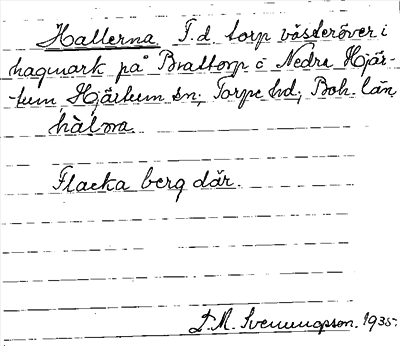 Hallerna. T.d torp västeröver i
hagmark på Brattorp o Nedra Hjär-
tum Hjärtum sn; Torpe hd; Boh. län,
hàlṇa
Flacka berg där.
D.M. Svenungsson. 1935.